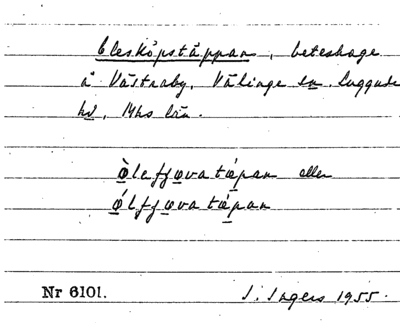 Olesköpstäppan, beteshage
å Västraby, Välinge sn. Luggude
hd, Mhs län.
ò̲lefj̲øvatæ̲pan eller
ó̲lfj̲øvatæ̲pan
Nr 6101. I. Ingers 1955.